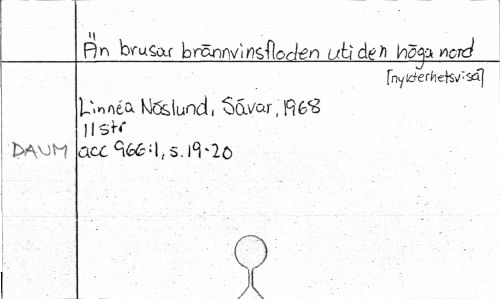 Än brusar brännvinsfloden uti den höga nord
[nykterhetsvisa]
Linnéa Näslund, Sävar, 1968
11 str
DAUM acc 966:1, s. 19-20